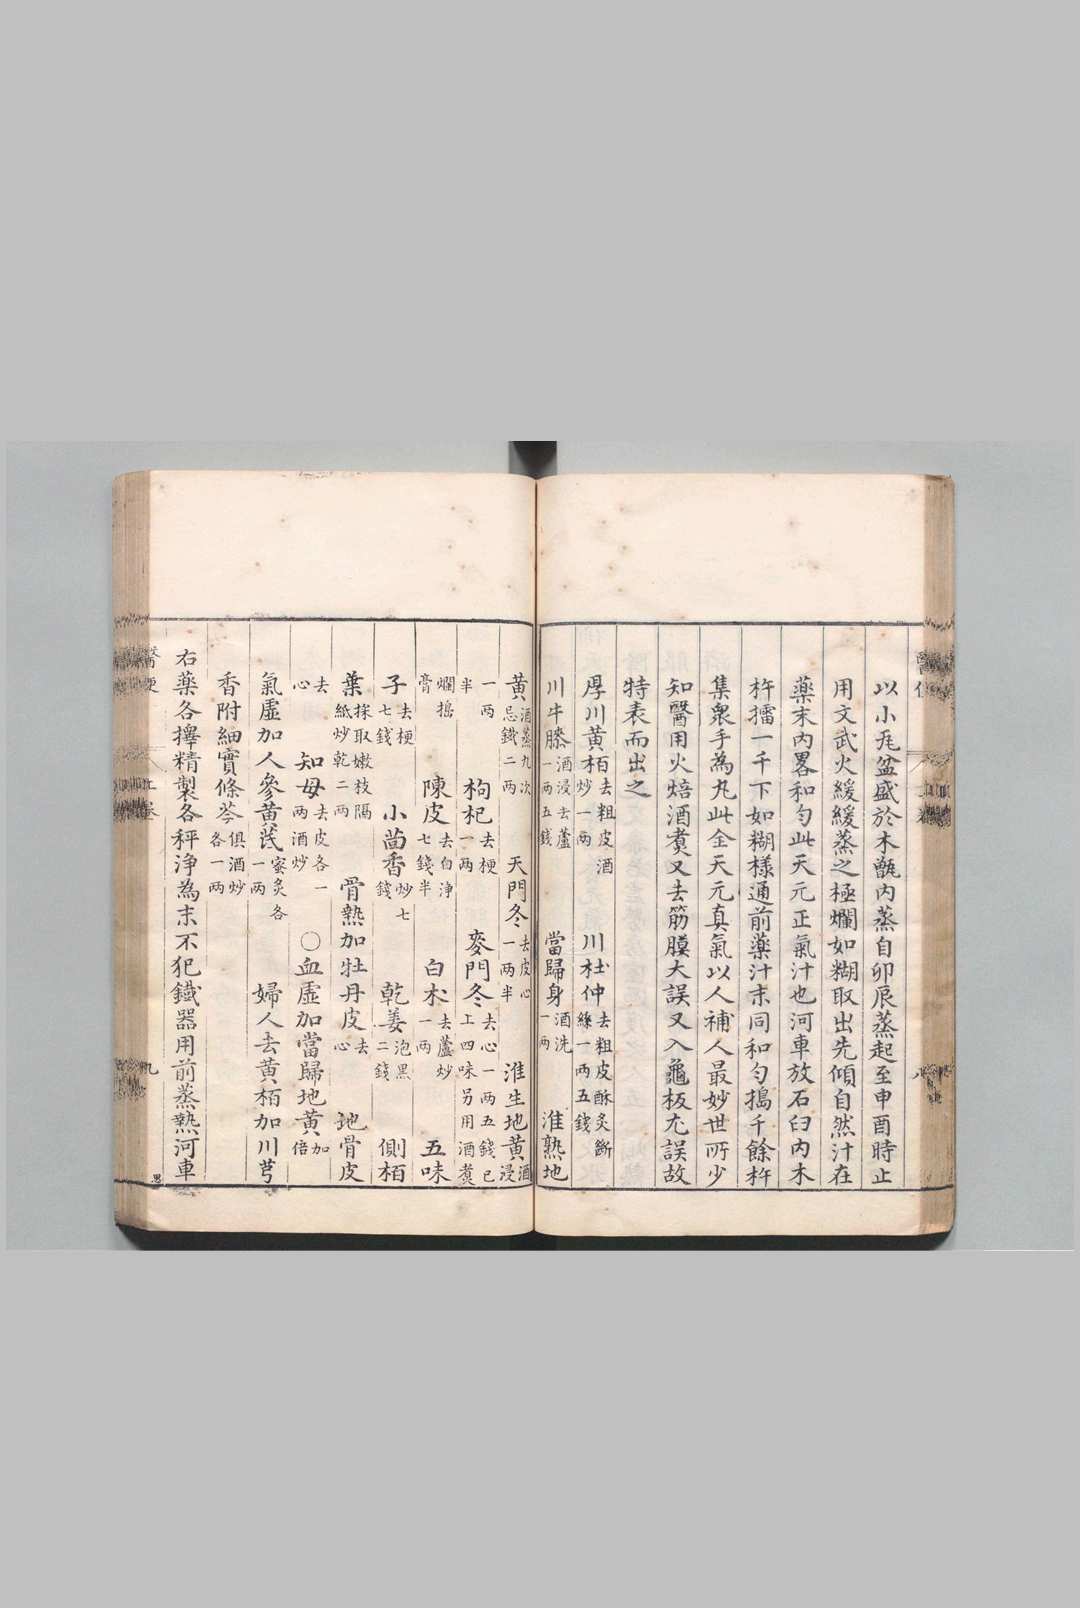 以小瓦盆盛於木甑內蒸自卯辰蒸起至申酉時止
用文武火緩緩蒸之極爛如糊取出先傾自然汁在
藥末內畧和勻此天元正氣汁也河車放石臼內木
杵擂一千下如糊樣通前藥汁末同和勻搗千餘杵
集衆手為丸此全天元真氣以人補人最妙世所少
知醫用火焙酒煑又去筋膜大誤又入龜板尤誤故
特表而出之
厚川黃栢去粗皮酒炒一兩 川杜仲去粗皮酥炙斷絲一兩五錢
川牛膝酒浸去蘆一兩五錢 當歸身酒洗一兩 淮熟地
黃酒蒸九次忌鐵二兩 天門冬去皮心一兩半 淮生地黃酒浸
一兩半 枸杞去梗一兩 麥門冬去心一兩五錢已上四味另用酒煑
爛搗膏 陳皮去白淨七錢半 白术去蘆炒一兩 五味
子去梗七錢 小茴香炒七錢 乾姜泡黑二錢 側栢
葉採取嫩枝隔紙炒乾二兩 骨熱加牡丹皮去心 地骨皮
去心 知母去皮各一兩酒炒 ○血虛加當歸地黃加倍
氣虛加人參黃茋蜜炙各一兩 婦人去黃栢加川芎
香附細實條芩俱酒炒各一兩
右藥各擇精製各秤淨為末不犯鐵器用前蒸熱河車
上卷
九